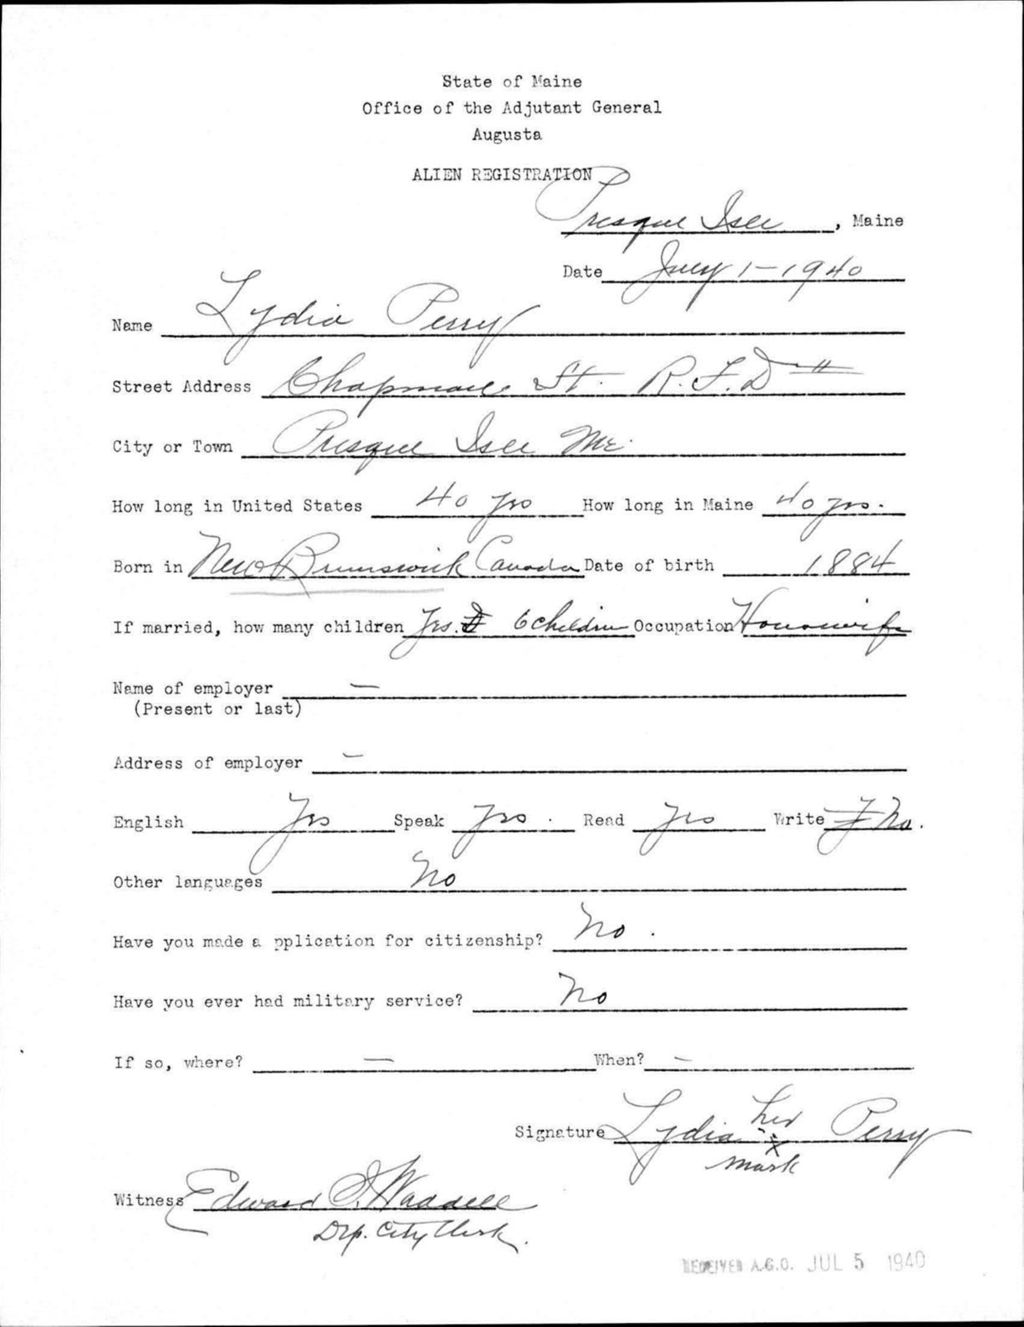 State of Maine
Office of the Adjutant General
Augusta
ALIEN REGISTRATION
Presque Isle, Maine
Date July 1-1940
Name Lydia Perry
Street Address Chapman St. R.F.D
City or Town Presque Isle Me.
How long in United States 40 yrs How long in Maine 40 yrs.
Born in New Brunswick Canada Date of birth 1884
If married, how many children Yes. 6 children Occupation Housewife
Name of employer —
(Present or last)
Address of employer —
English Yes Speak Yes. Read Yes Write No.
Other languages No
Have you made a pplication for citizenship? No.
Have you ever had military service? No
If so, where? — When? —
her
Signature Lydia x Perry
mark
Witness Edward I. Waddell
Dep. City Clerk.
RECEIVED A.G.O. JUL 5 1940